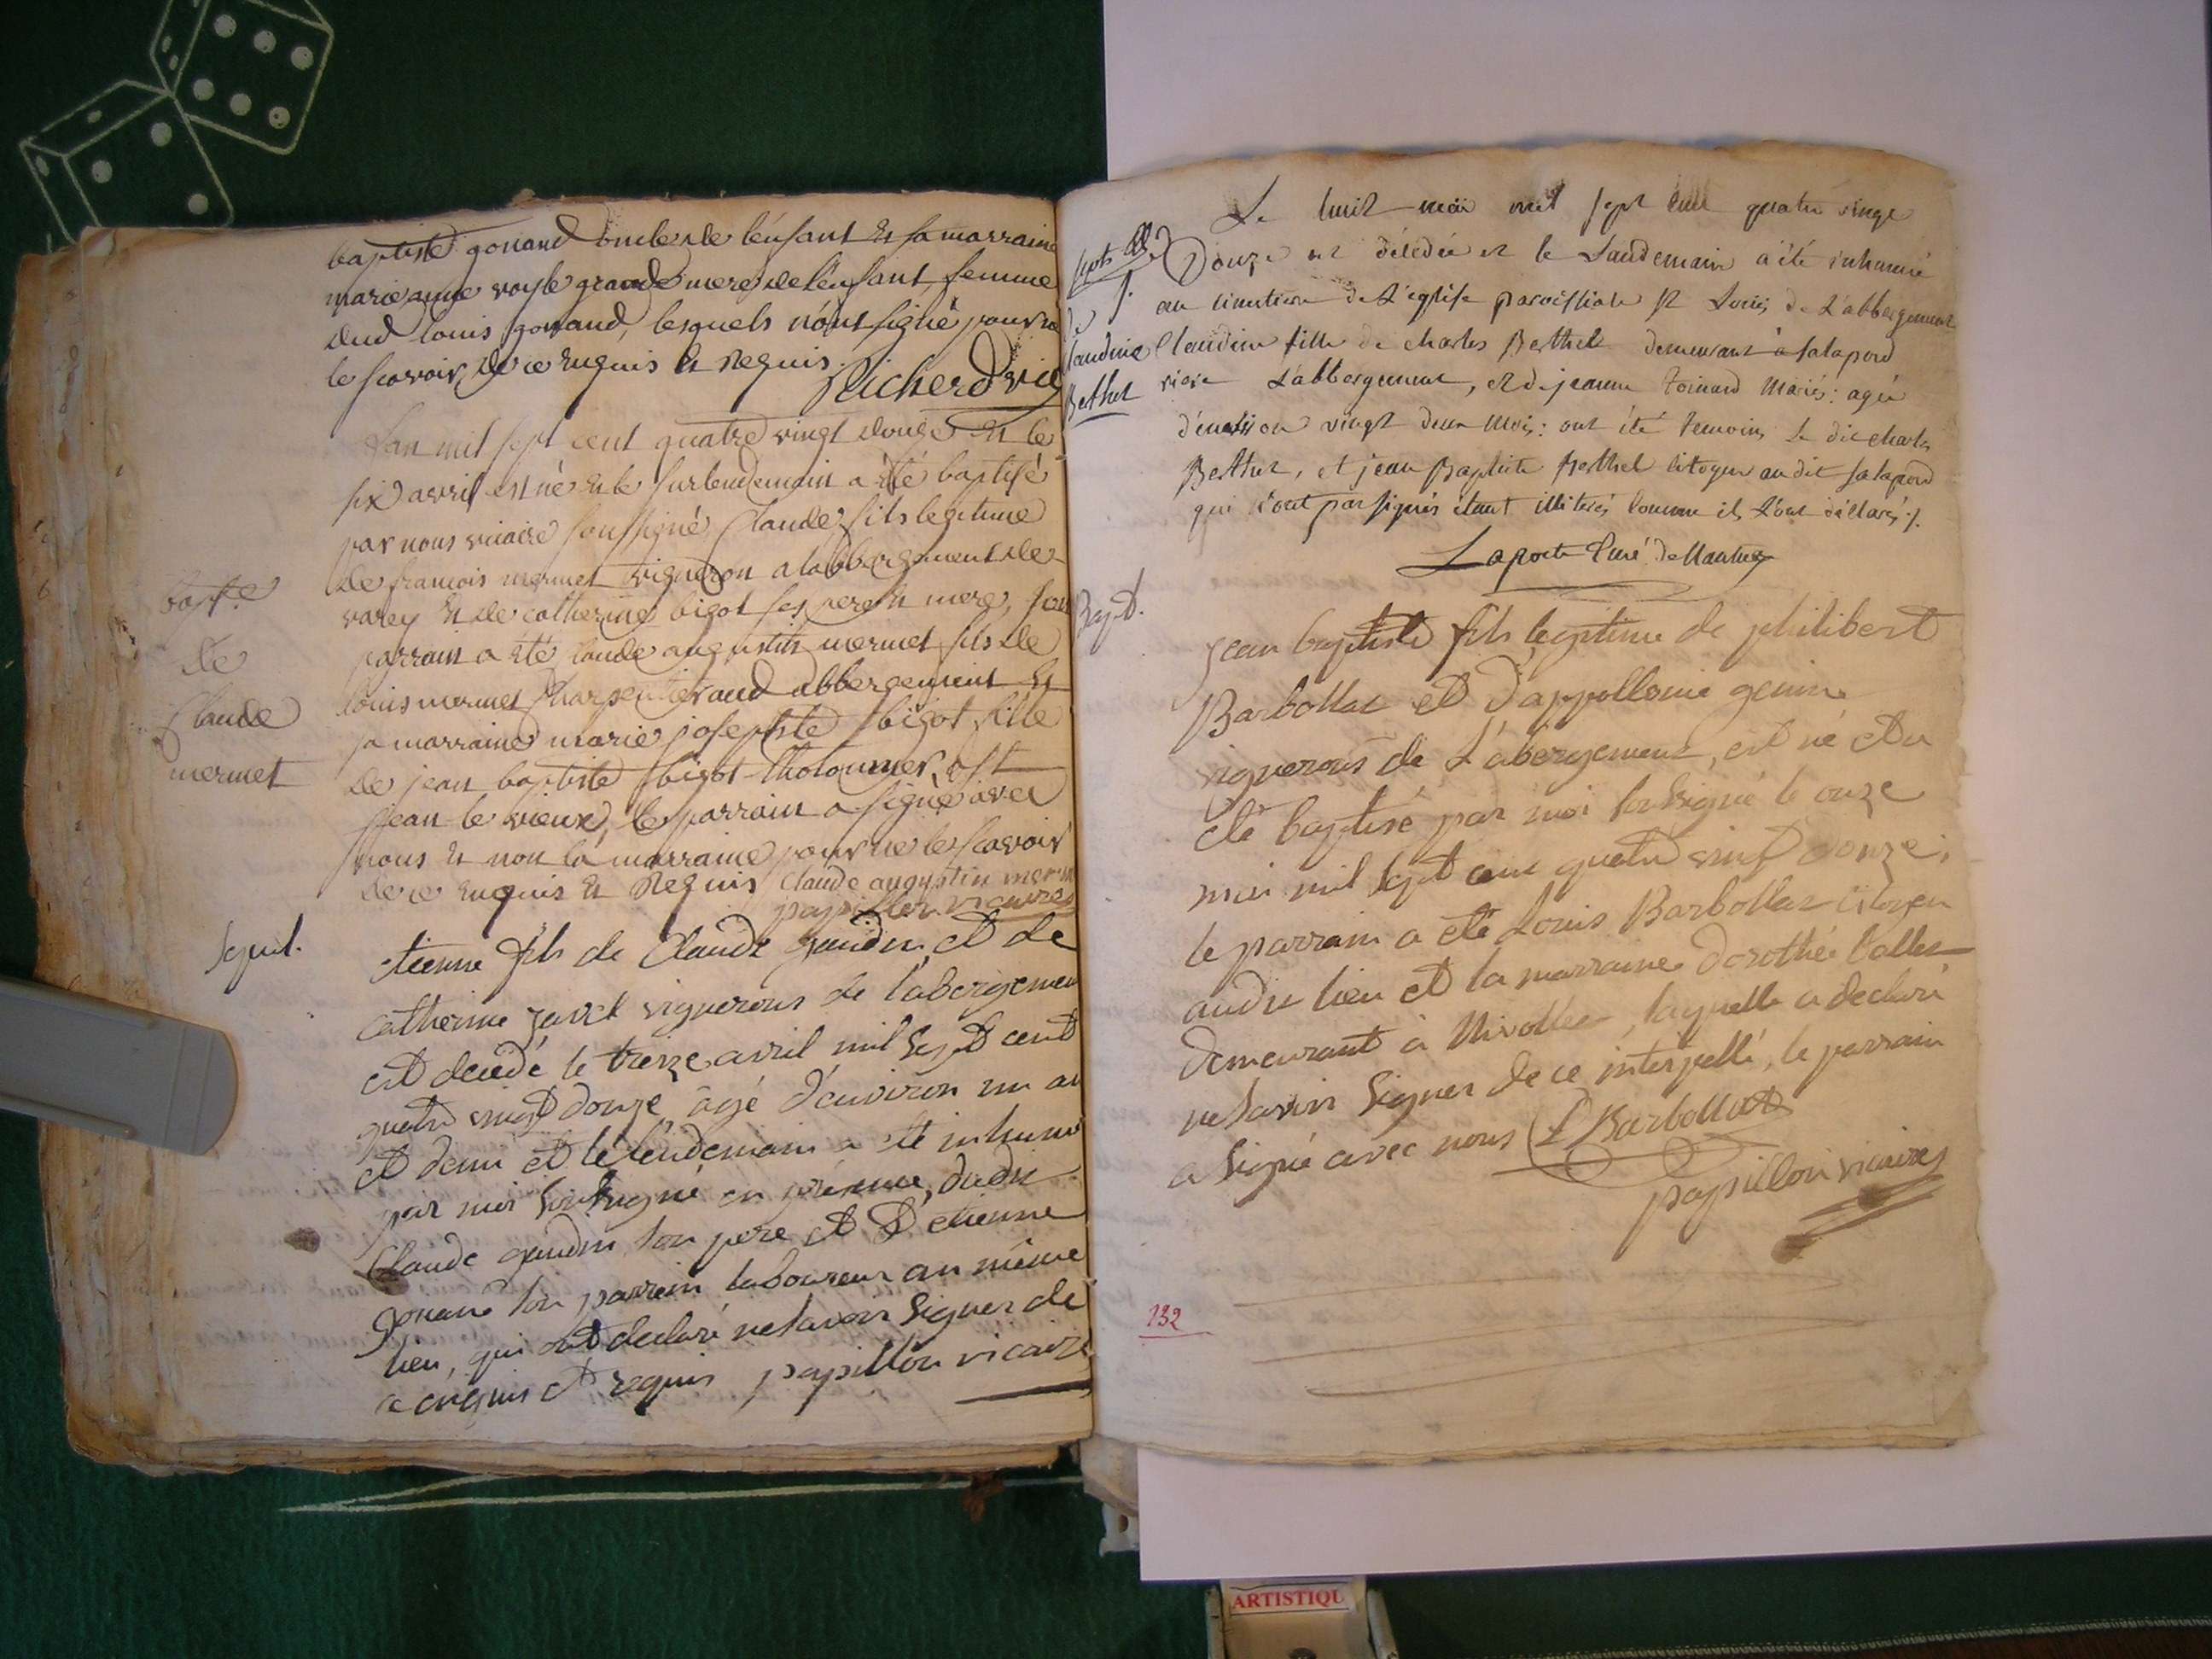 baptiste gonand oncle de l'enfant et sa marraine
marie anne grande mere de l'enfant femme
dud louis gonand, lesquels n'ont signé pour ne
le scavoir de ce enquis et requis.
Richerd vic
bapt.e
de
Claude
mermet
l'an mil sept cent quatre vingt douze et le
six avril est né et le surlendemain a été baptisé
par nous vicaire soussigné Claude fils legitime
de francois mermet vigneron a labbergement de
varey et de catherine bigot ses pere et mere, son
parrain a été claude augustin mermet fils de
louis mermet charpentier aud abbergement et
sa marraine marie josephte bigot fille
de jean baptiste bigot de st
jean le vieux, le parrain a signé avec
nous et non la marraine pour ne le scavoir
de ce enquis et requis claude augustin mermet
papillon vicaire
Sepul.
etienne fils de Claude gaudin et de
catherine javet vignerons de l'abergement
est decedé le treize avril mil sept cent
quatre vingt douze âgé d'environ un an
et demi et le lendemain a été inhumé
par moi soussigné en présence dudit
Claude gaudin son pere et d'etienne
gonand son parrain laboureur au même
lieu, qui ont declaré ne savoir signer de
ce enquis et requis papillon vicaire
Le huit mai mil sept cent quatre vingt
Douze est décédée et le Landemain a été inhumée
au cimetiere de L'eglise paroissiale st Louis de L'abbergement
de
Claudine
Berthet
Claudine fille de charles Berthet demeurant à Salapord
riere L'abbergement, et de jeanne mariés: agée
d'environ vingt deux mois: ont été temoins Le dit charles
Berthet, et jean Baptiste Berthet citoyen audit Salapord
qui n'ont pas signés étant illiterés comme ils L'ont déclarés ./.
Laporte Curé de
Bapt.
jean baptiste fils legitime de philibert
Barbollat et d'appollonie genin
vignerons de L'abergement, est né et a
été baptisé par moi soussigné le onze
mai mil sept cent quatre vingt douze,
le parrain a été Louis Barbollat citoyen
audit lieu et la marraine dorothée
demeurant à Nivollet, laquelle a declaré
ne savoir signer de ce interpellé, le parrain
a signé avec nous L Barbollat
papillon vicaire
132
ARTISTIQU